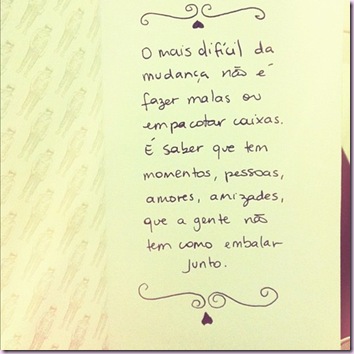 O mais difícil da
mudança não é
fazer malas ou
empacotar caixas.
É saber que tem
momentos, pessoas,
amores, amizades,
que a gente não
tem como embalar
junto.